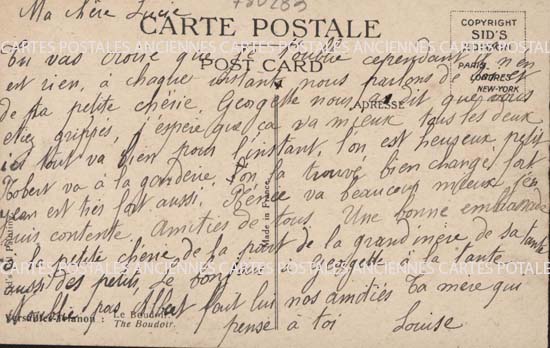 Ma chère Lucie
780289
CARTE POSTALE
POST CARD
COPYRIGHT
SID'S
EDITIONS
PARIS
LONDRES
NEW-YORK
Tu vas croire que oublie cependant il n'en
est rien, à chaques instants nous parlons de et
de ta petite chérie. Georgette nous dit que vous
ADRESSE
etiez grippés, j'espère que ça va mieux tous les deux
ici tout va bien pour l'instant, l'on est heureux petit
Robert va à la garderie. l'on la trouvé bien changé, fort
Jean est très fort aussi. Renée va beaucoup mieux j'en
suis contente. Amities de tous. Une bonne embrassade
à la petite chérie de la part de la grandmère de sa tante
aussi des petits, le bonjour à Georgette à la tante
N'oublie pas Albert faut lui nos amitiés Ta mère qui
pense à toi Louise
Made in France
Versailles-Trianon : Le Boudoir.
The Boudoir.
CARTES POSTALES ANCIENNES CARTES POSTALES ANCIENNES